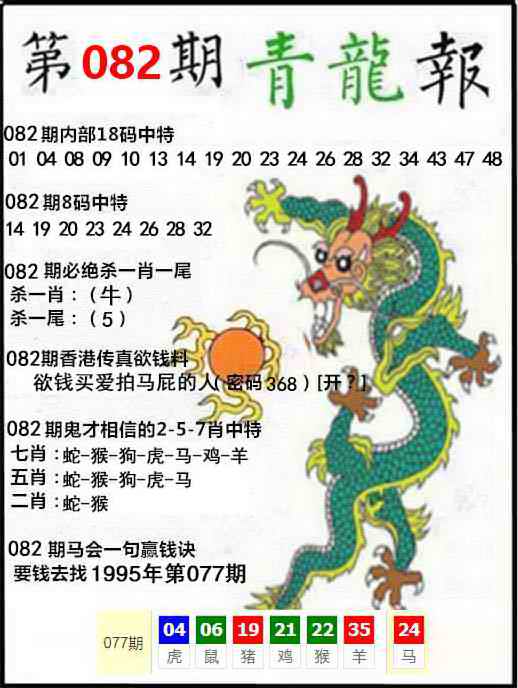 第082期 青龍報
082期内部18码中特
01 04 08 09 10 13 14 19 20 23 24 26 28 32 34 43 47 48
082期8码中特
14 19 20 23 24 26 28 32
082 期必绝杀一肖一尾
杀一肖：（牛）
杀一尾：（5）
082期香港传真欲钱料
欲钱买爱拍马屁的人(密码368）[开？]
082期鬼才相信的2-5-7肖中特
七肖：蛇-猴-狗-虎-马-鸡-羊
五肖：蛇-猴-狗-虎-马
二肖：蛇-猴
082 期马会一句赢钱诀
要钱去找1995年第077期
077期 04 06 19 21 22 35 24
虎 鼠 猪 鸡 猴 羊 马